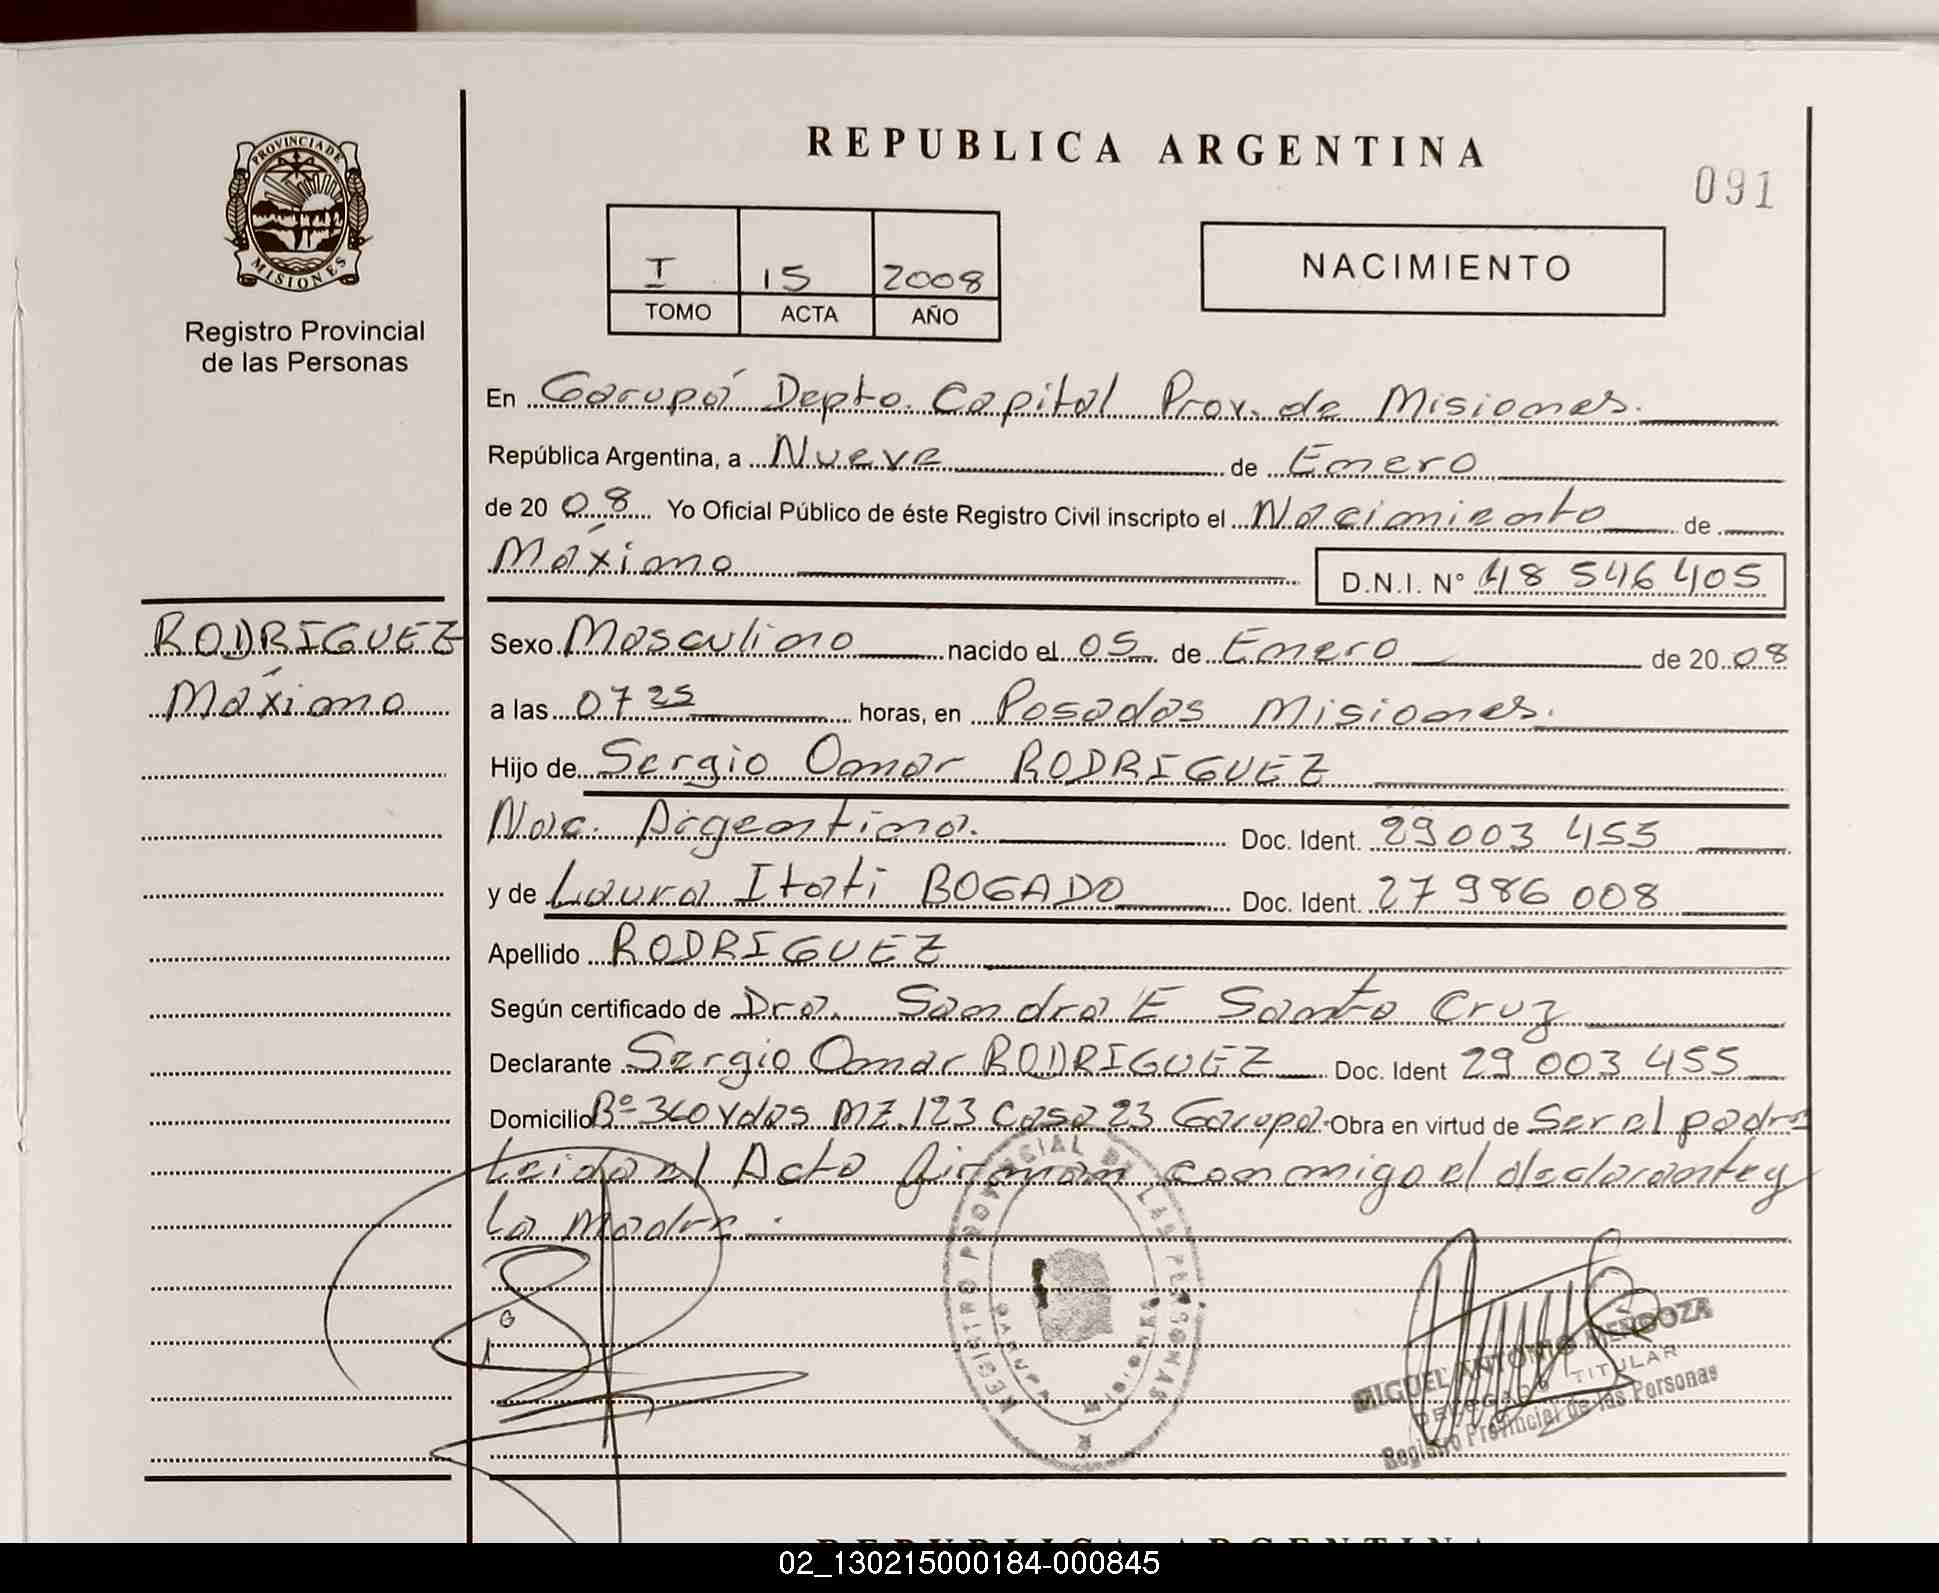 REPUBLICA ARGENTINA
091
PROVINCIA DE
MISIONES
Registro Provincial
de las Personas
I 15 2008
TOMO ACTA AÑO
NACIMIENTO
En Garupá Depto. Capital Prov. de Misiones.
República Argentina, a Nueve de Enero
de 2008 Yo Oficial Público de éste Registro Civil inscripto el Nacimiento de
Máximo D.N.I. N° 48 546 405
RODRIGUEZ
Máximo
Sexo Masculino nacido el 05 de Enero de 2008
a las 07 25 horas, en Posadas Misiones.
Hijo de Sergio Omar RODRIGUEZ
Nac. Argentina. Doc. Ident. 29 003 455
y de Laura Itati BOGADO Doc. Ident. 27 986 008
Apellido RODRIGUEZ
Según certificado de Dra. Sandra E Santa Cruz
Declarante Sergio Omar RODRIGUEZ Doc. Ident 29 003 455
Domicilio Bº 340 Vdas MZ.123 Casa 23 Garupa. Obra en virtud de Ser el padre
Leida el Acta firman conmigo el declarante y
la madre.
REGISTRO PROVINCIAL DE LAS PERSONAS
GARUPA MISIONES
MIGUEL ANTONIO MENDOZA
DELEGADO TITULAR
Registro Provincial de las Personas
REPUBLICA ARGENTINA
02_130215000184-000845